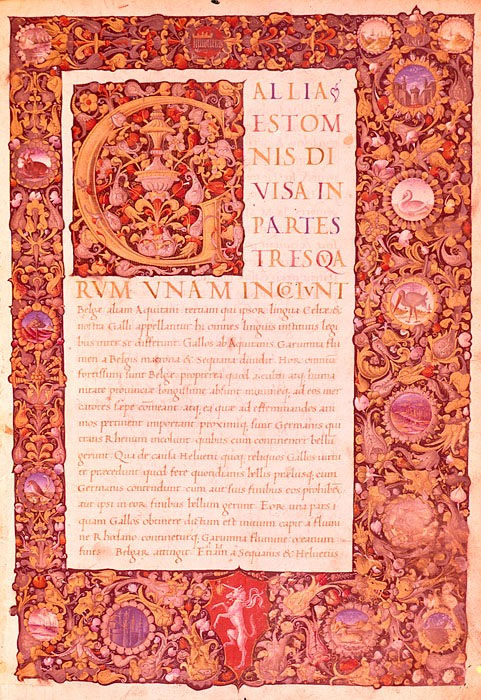 GALLIA
EST OM
NIS DI
VISA IN
PARTES
TRES QVA
RVM VNAM INCOLVNT
Belgæ aliam Aquitani tertiam qui ipsor lingua Celtæ
nostra Galli appellantur hi omnes linguis institutis legi
bus inter se differunt Gallos ab Aquitanis Garunna flu
men a Belgis matrona & Sequana diuidit Hor omniũ
fortissimi sunt Belgæ propterea quod a cultu atq huma
nitate prouinciæ longissime absunt minimeq ad eos mer
catores sæpe comeant atq ea quæ ad effeminandos ani
mos pertinent important proximiq sunt Germanis qui
trans Rhenum incolunt quibus cum continenter bellũ
gerunt Qua de causa Heluetii quoq reliquos Gallos uirtu
te præcedunt quod fere quotidianis bellis præliisq cum
Germanis contendunt cum aut suis finibus eos prohibẽt
aut ipsi in eor finibus bellum gerunt Eor una pars
quam Gallos obtinere dictum est initium capit a flumi
ne Rhodano continetur Garunna flumine oceanum
finis Belgar attingit Etiam a Sequanis & Heluetiis